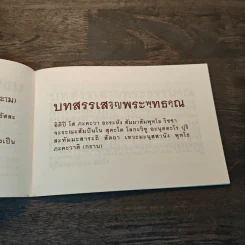 บทสรรเสริญพระพุทธคุณ
อิติปิ โส ภะคะวา อะระหัง สัมมาสัมพุทโธ วิชชา
จะระณะสัมปันโน สุคะโต โลกะวิทู อะนุตตะโร ปุริ
สะทัมมะสาระถิ สัตถา เทวะมะนุสสานัง พุทโธ
ภะคะวาติ (กราบ)